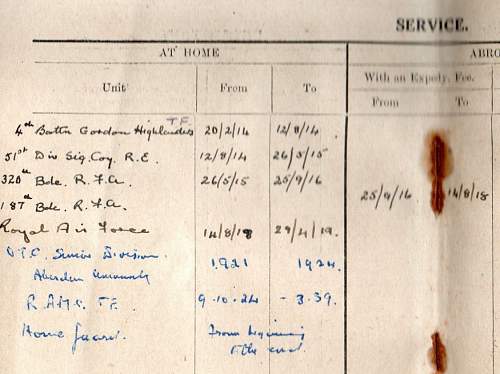 SERVICE.
AT HOME ABRO
Unit From To With an Expedy. Fce.
From To
4th Battn Gordon Highlanders T.F. 20/2/14 12/8/14
51st Div Sig. Coy. R.E. 12/8/14 26/5/15
320th Bde. R.F.A. 26/5/15 25/9/16
187th Bde. R.F.A. 25/9/16 14/8/18
Royal Air Force 14/8/18 29/4/19.
O.T.C. Senior Division 1921 1924.
Aberdeen University
R.A.M.C. T.F. 9-10-24 - 3.39.
Home Guard. From beginning
to the end.